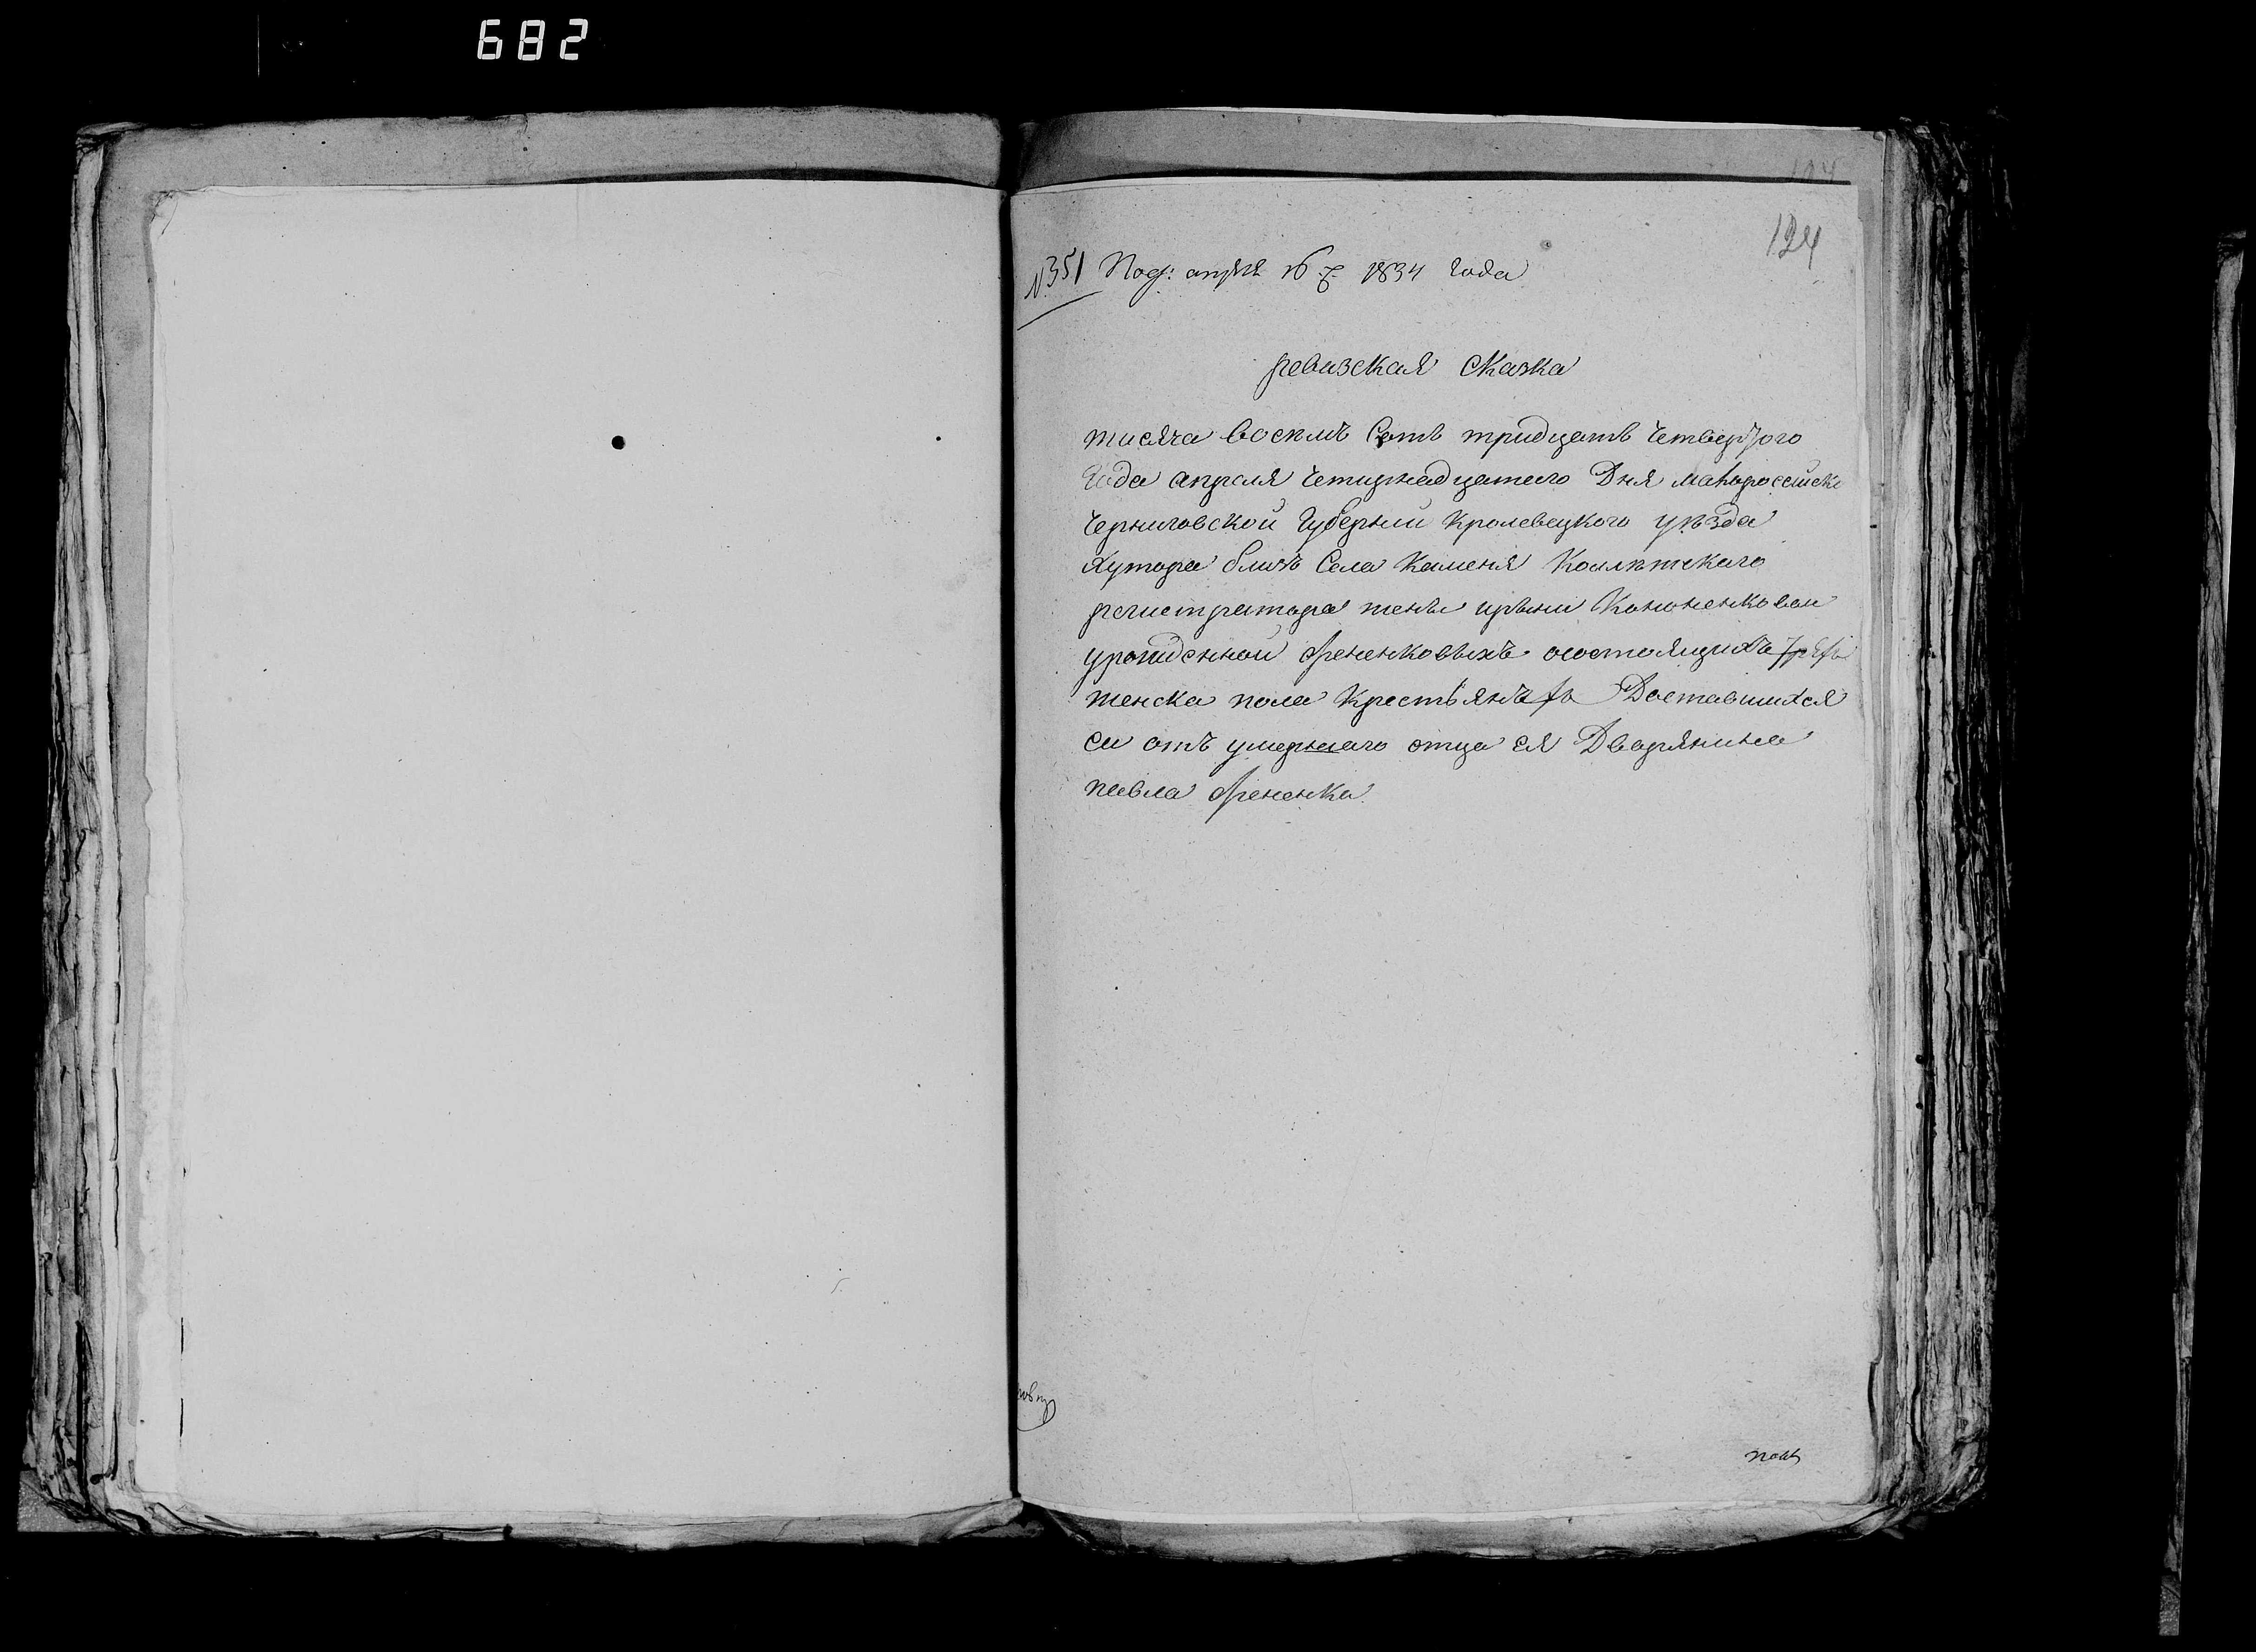 682
124
124
№351 Под: апреля 16 д. 1834 года
ревизская сказка
тисяча восемъ Сотъ тридцать четвертого
Года апреля четирнадцатаго Дня малоросейск
черниговской Губернии кролевецкого уезда
хутора близъ Села каменя Колѣжскаго
регистратора жены ирины Кононенковои
урожденной Ярененковыхъ осостоящихъ
женска пола крестьянъ Доставшихся
еи отъ умершаго отца ея Дворянина
павла Ярененка